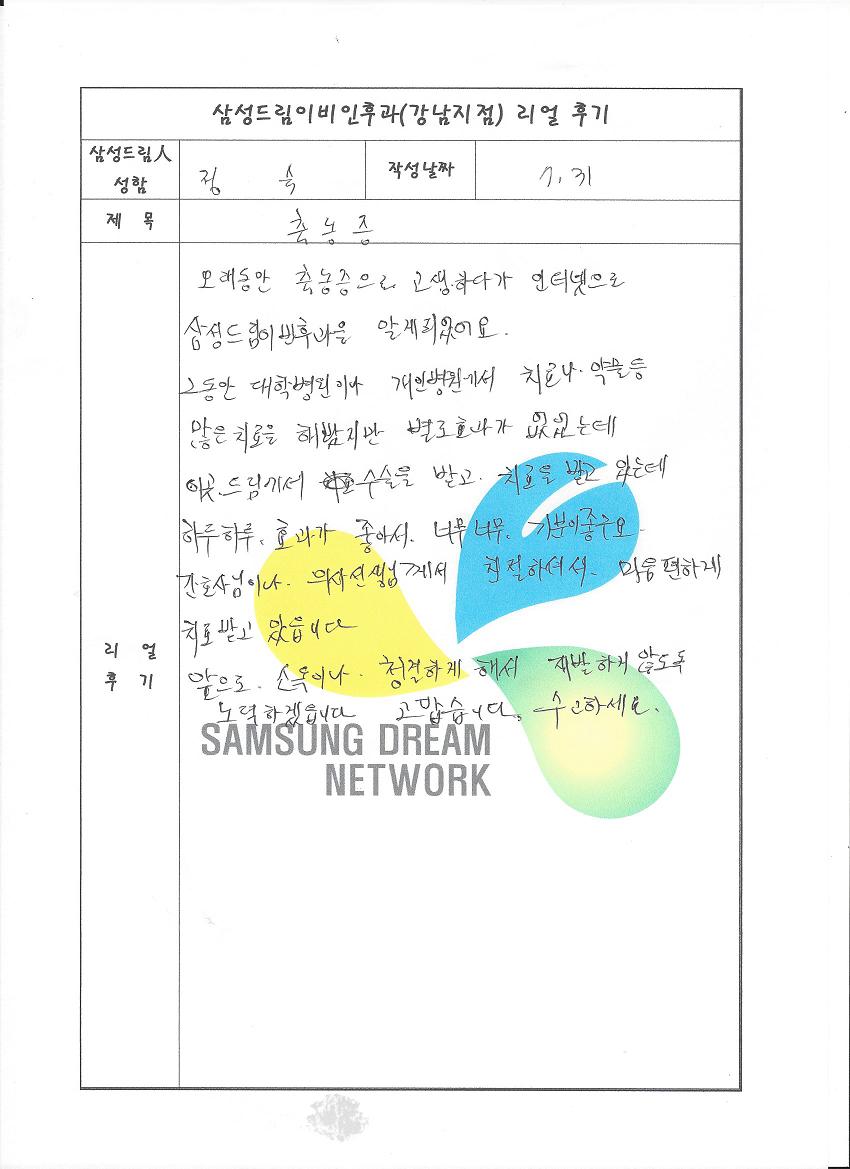 삼성드림이비인후과(강남지점) 리얼 후기
삼성드림人 성함 정 숙 작성날짜 7. 31
제 목 축농증
오래동안 축농증으로 고생하다가 인터넷으로
삼성드림이빈후과을 알게되었어요.
그동안 대학병원이나 개인병원가서 치료나 약물등
많은 치료을 해밨지만 별로효과가 없었는데
이곳 드림에서 수술을 받고. 치료을 받고 있는데
하루하루, 효과가 좋아서. 너무너무, 기분이좋구요.
간호사님이나. 의사선생님께서 친절하셔서. 마음편하게
치료받고 있읍니다
리 얼
후 기
앞으로. 손옥이나. 청결하게 해서 재발하게 않도독
노력하겠읍니다 고맙습니다. 수고하세요.
SAMSUNG DREAM
NETWORK